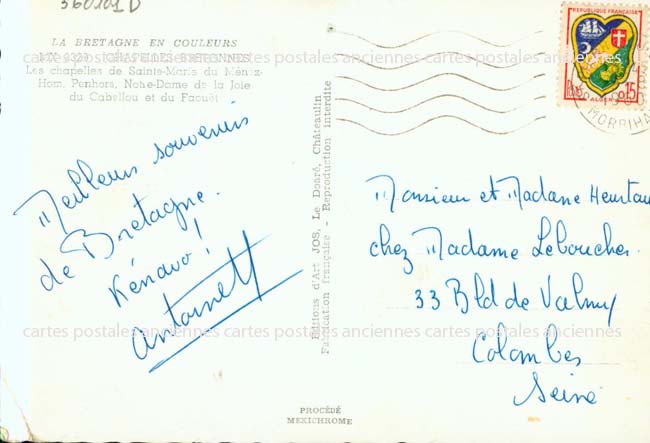 360101D
LA BRETAGNE EN COULEURS
CHAPELLES BRETONNES
Les chapelles de Sainte-Marie du Ménez-
Hom, Penhors, Notre-Dame de la Joie
du Cabellou et du Faouët
Meilleurs souvenirs
de Bretagne.
Kénavo !
Antoinette
Editions d'Art JOS, Le Doaré, Châteaulin
Fabrication française - Reproduction interdite
REPUBLIQUE FRANÇAISE
ALGER
0,15
MORBIHA
Monsieur et Madame
chez Madame Leboucher
33 Bld de Valmy
Colombes
Seine
cartes postales anciennes cartes postales anciennes cartes postales anciennes
cartes postales anciennes cartes postales anciennes cartes postales anciennes
PROCÉDÉ
MEXICHROME